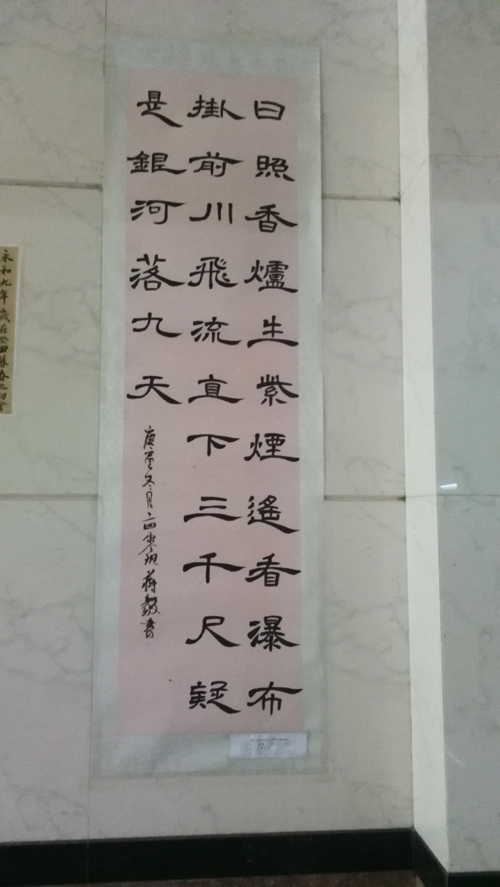 日照香爐生紫煙遙看瀑布
掛前川飛流直下三千尺疑
是銀河落九天
庚 冬月 蔣毅書
永和九年歲在癸丑暮春之初會